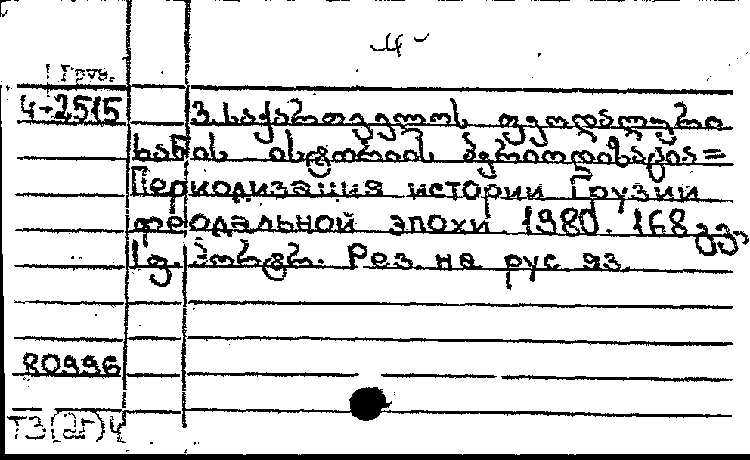 -4-
Груз.
4-2515 3. საქართველოს ფეოდალური
ხანის ისტორიის პერიოდიზაცია=
Периодизация истории Грузии
феодальной эпохи. 1980. 168 გვ,
1 ფ. პორტრ. Рез. на рус. яз.
80996
Т3(2Г)4